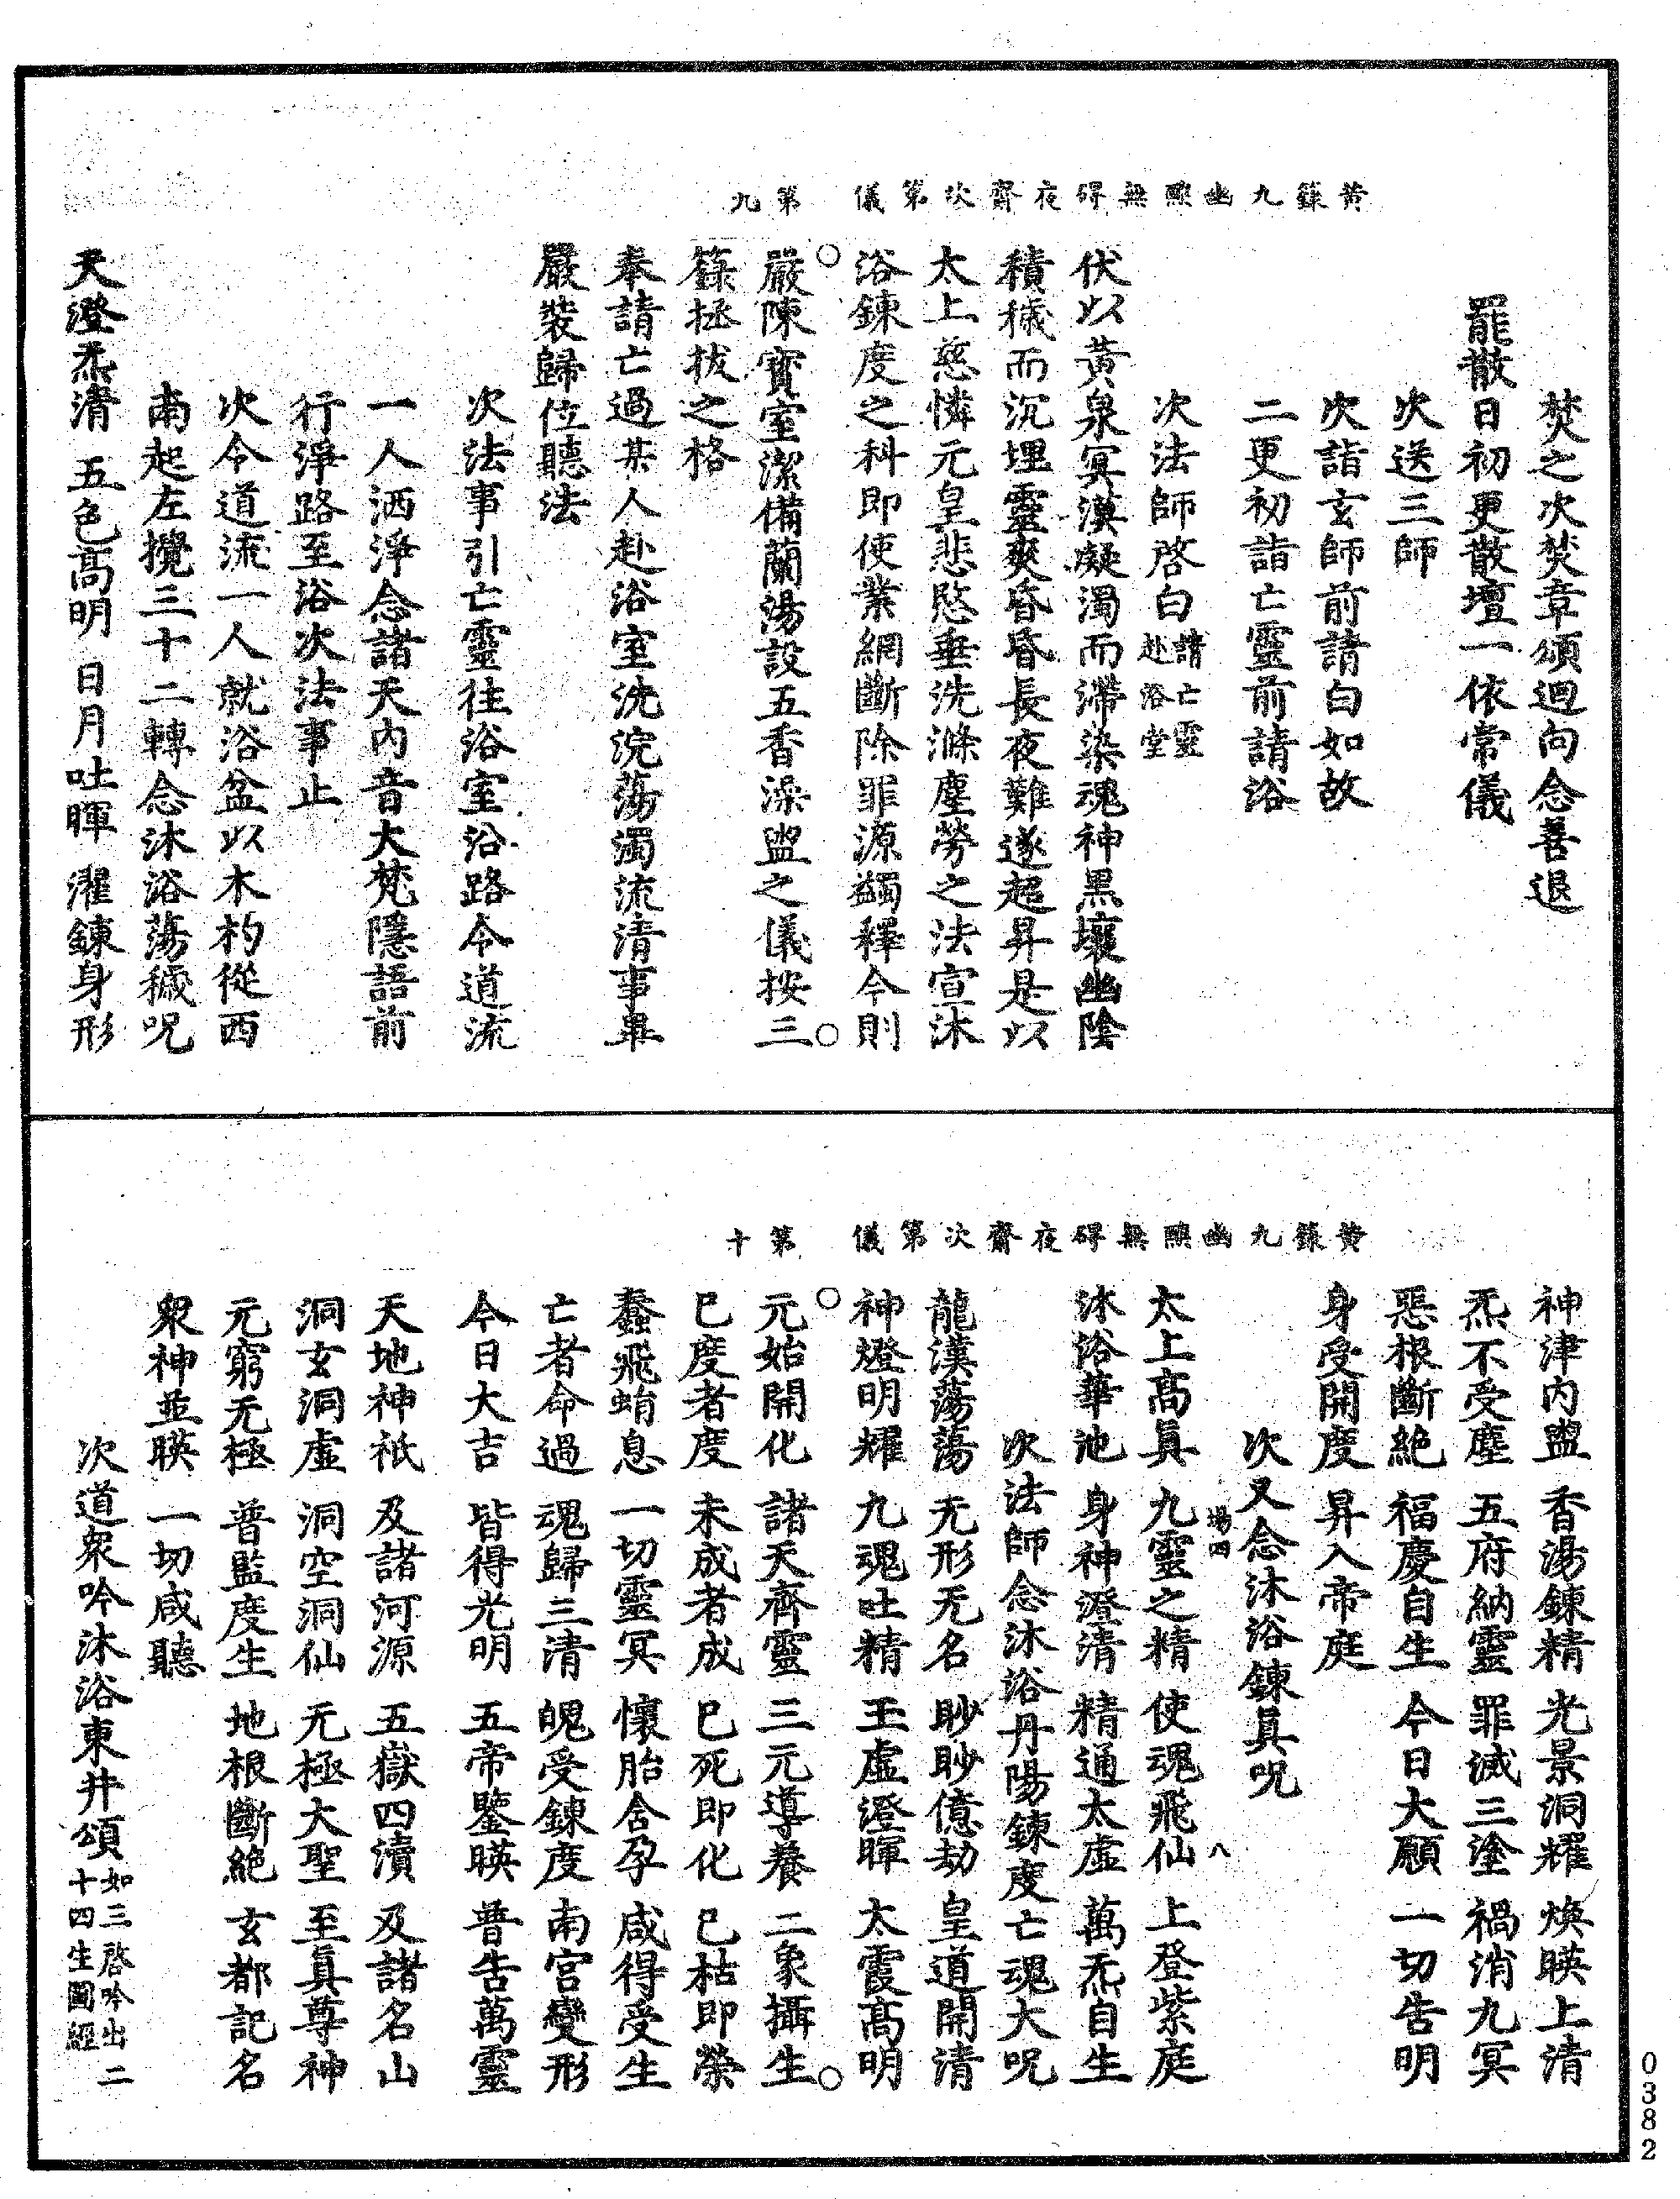 黃籙九幽醮無碍夜齋次第儀　第九
焚之次焚章頌迴向念善退
罷散日初更散壇一依常儀
次送三師
次詣玄師前請白如故
二更初詣亡靈前請浴
次法師啓白請亡靈赴浴堂
伏以黃泉冥漠凝濁而滯染魂神黑壤幽陰
積穢而沉埋靈爽昏昏長夜難遂超昇是以
太上慈憐元皇悲愍垂洗滌塵勞之法宣沐
浴鍊度之科即使業網斷除罪源蠲釋今則
嚴陳寶室潔備蘭湯設五香澡盥之儀按三
籙拯拔之格
奉請亡過某人赴浴室洗浣蕩濁流清事畢
嚴裝歸位聽法
次法事引亡靈往浴室沿路令道流
一人洒淨念諸天內音大梵隱語前
行淨路至浴次法事止
次令道流一人就浴盆以木杓從西
南起左攪三十二轉念沐浴蕩穢呪
天澄炁清　五色高明　日月吐暉　濯鍊身形
黃籙九幽醮無碍夜齋次第儀　第十
神津內盥　香湯鍊精　光景洞耀　煥暎上清
炁不受塵　五府納靈　罪滅三塗　禍消九冥
惡根斷絕　福慶自生　今日大願　一切告明
身受開度　昇入帝庭
次又念沐浴鍊眞呪
場四　八
太上高眞　九靈之精　使魂飛仙　上登紫庭
沐浴華池　身神澄清　精通太虛　萬炁自生
次法師念沐浴丹陽鍊度亡魂大呪
龍漢蕩蕩　无形无名　眇眇億劫　皇道開清
神燈明耀　九魂吐精　玉虛澄暉　太霞高明
元始開化　諸天齊靈　三元導養　二象攝生
巳度者度　未成者成　巳死即化　巳枯即榮
蠢飛蛸息　一切靈冥　懷胎含孕　咸得受生
亡者命過　魂歸三清　魄受鍊度　南宮變形
今日大吉　皆得光明　五帝鑒暎　普告萬靈
天地神祇　及諸河源　五嶽四瀆　及諸名山
洞玄洞虛　洞空洞仙　元極大聖　至眞尊神
元窮无極　普監度生　地根斷絕　玄都記名
衆神並暎　一切咸聽
次道衆吟沐浴東井頌如三啓吟出二十四生圖經
0382